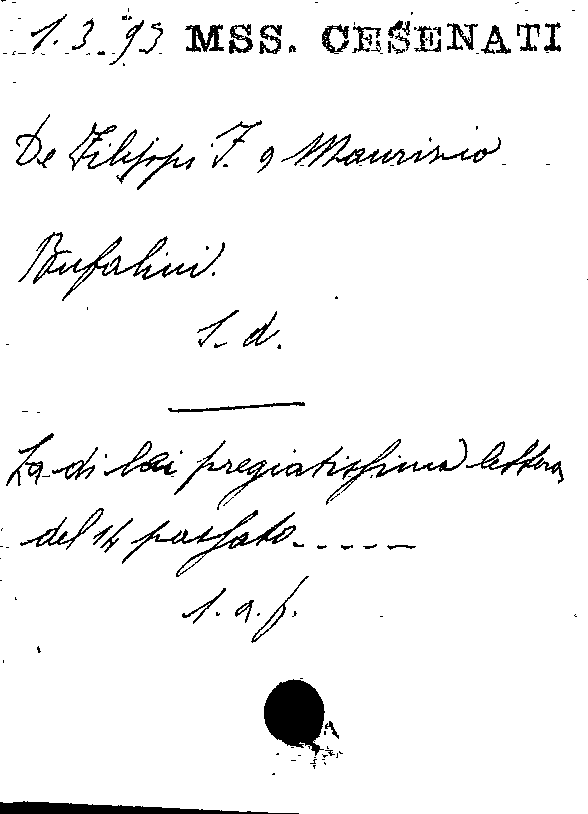 1.3.93 MSS. CESENATI
De Filippi F. a Maurizio
Bufalini.
S. d.
La di lei pregiatissima lettera
del 14 passato.-----
1. a. f.